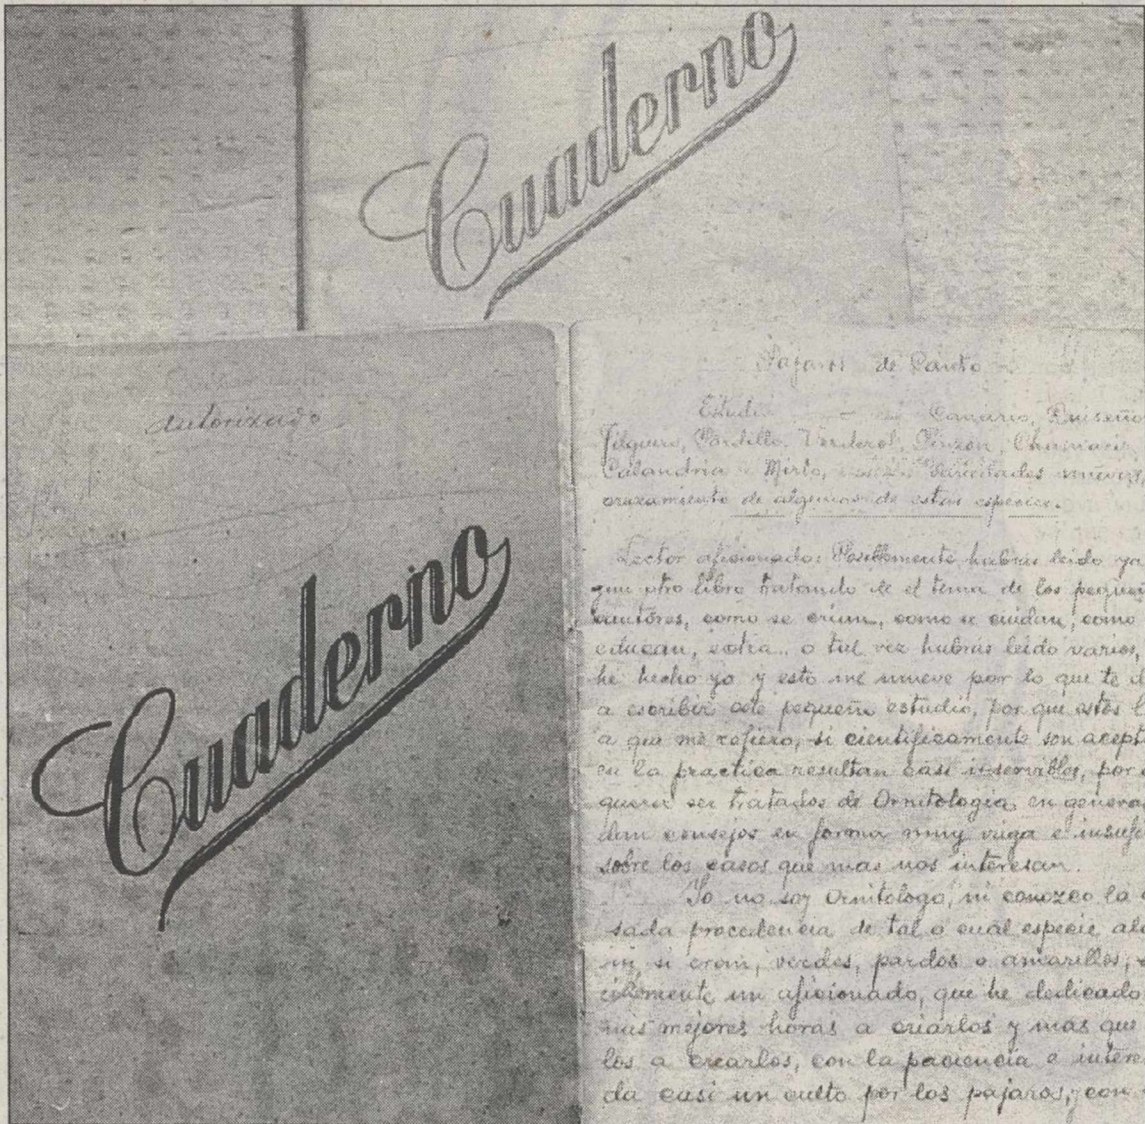 Cuaderno
autorizado
Cuaderno
Pajaros de Canto
Estudio Canario, Ruiseño
Jilguero, Pardillo, Verderol, Pinzon, Chamariz,
Calandria Mirlo, variedades nuevas,
cruzamiento de algunas de estas especies.
Lector aficionado: Posiblemente habras leido ya
gun otro libro tratando de el tema de los pequeñ
cantores, como se crian, como se cuidan, como
educan, ectra.. o tal vez habras leido varios,
he hecho yo y esto me mueve por lo que te d
a escribir este pequeño estudio, por que estos l
a que me refiero, si cientificamente son acept
en la practica resultan casi inservibles, por
querer ser tratados de Ornitologia, en genera
dan consejos en forma muy vaga e insufi
sobre los casos que mas nos interesan.
Yo no soy Ornitologo, ni conozco la
sada procedencia de tal o cual especie al
ni si eran, verdes, pardos o amarillos,
un aficionado, que he dedicado
mis mejores horas a criarlos y mas que
los a crearlos, con la paciencia e intere
da casi un culto por los pajaros, con